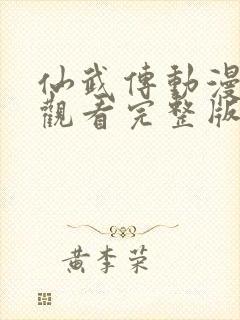 仙武傳動漫
觀看完整版
黄李荣